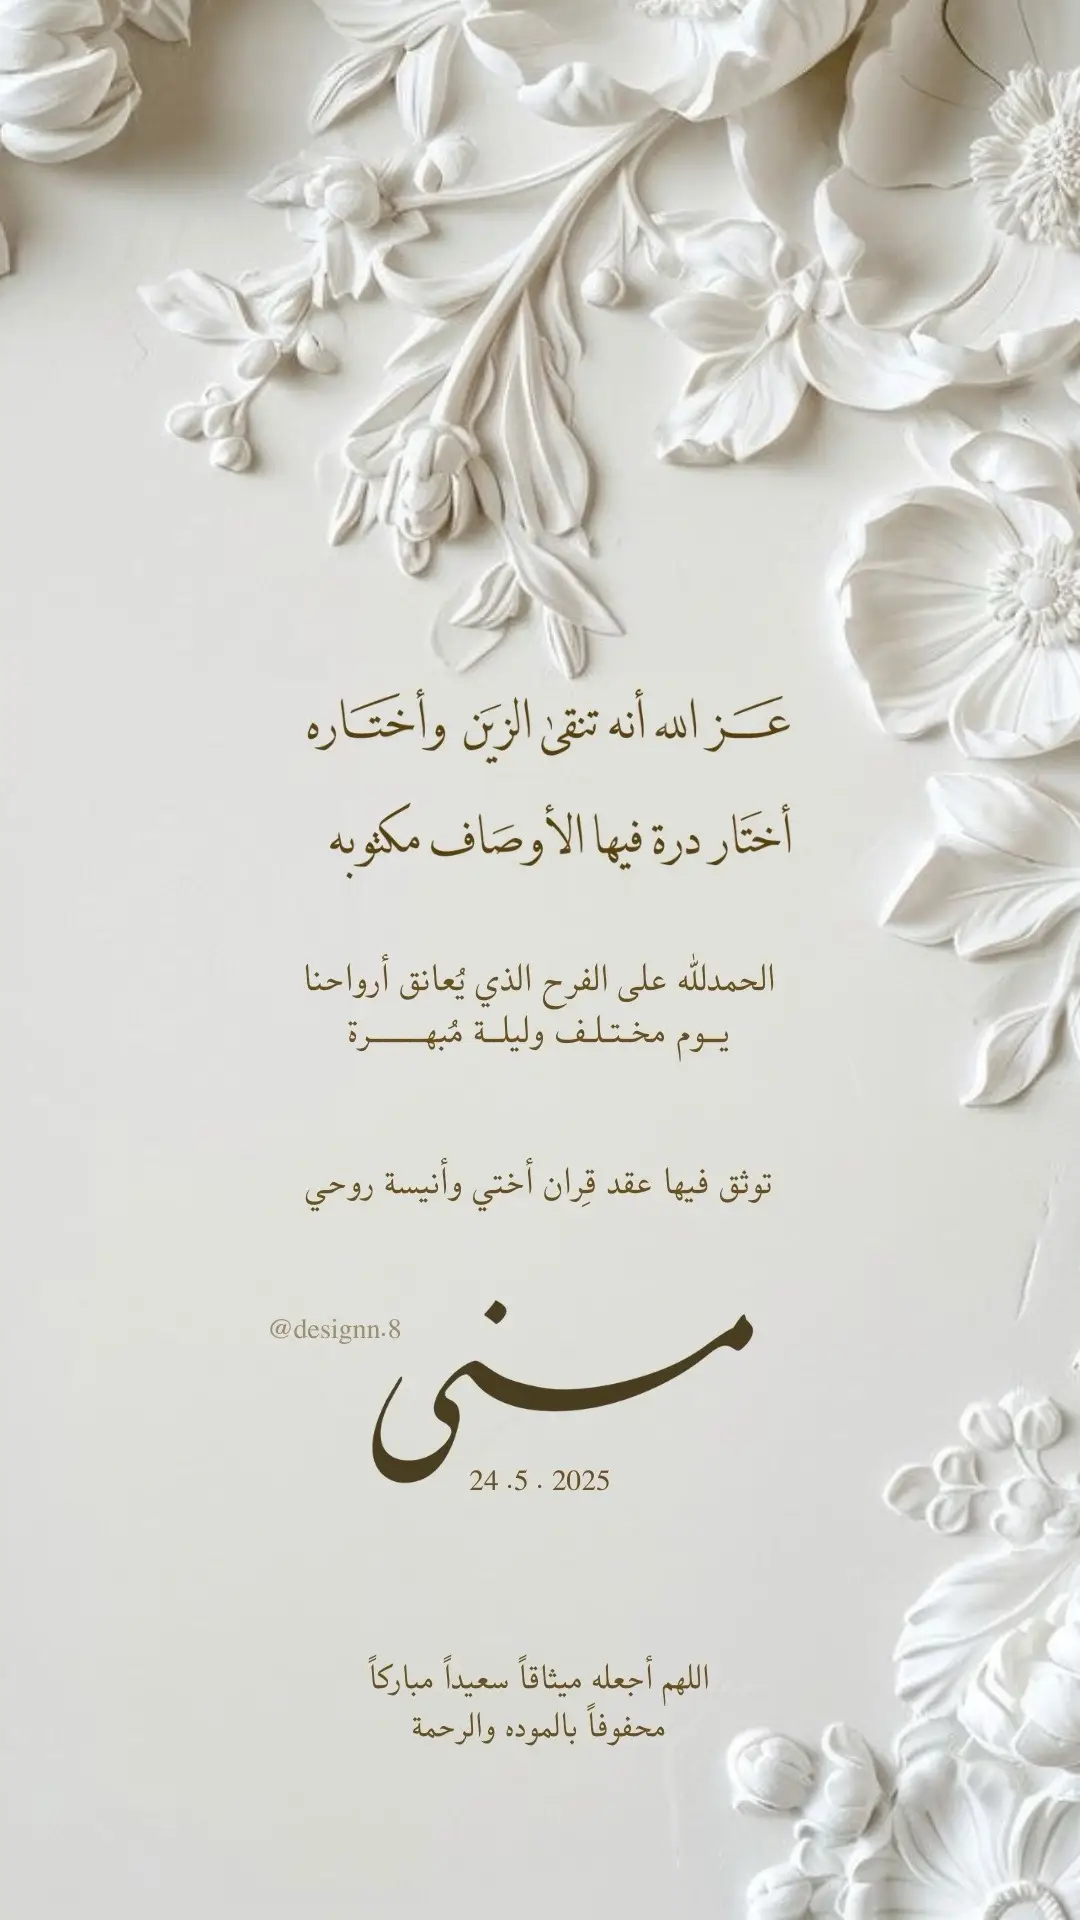 عَـــز الله أنه تنقىٰ الزيَن وأختَـــاره
أختَار درة فيها الأوصَاف مكتوبه
الحمدلله على الفرح الذي يُعانق أرواحنا
يــوم مختـلـف وليلــة مُبهـــــرة
توثق فيها عقد قِران أختي وأنيسة روحي
@designn.8
منى
24 .5 . 2025
اللهم أجعله ميثاقاً سعيداً مباركاً
محفوفاً بالموده والرحمة